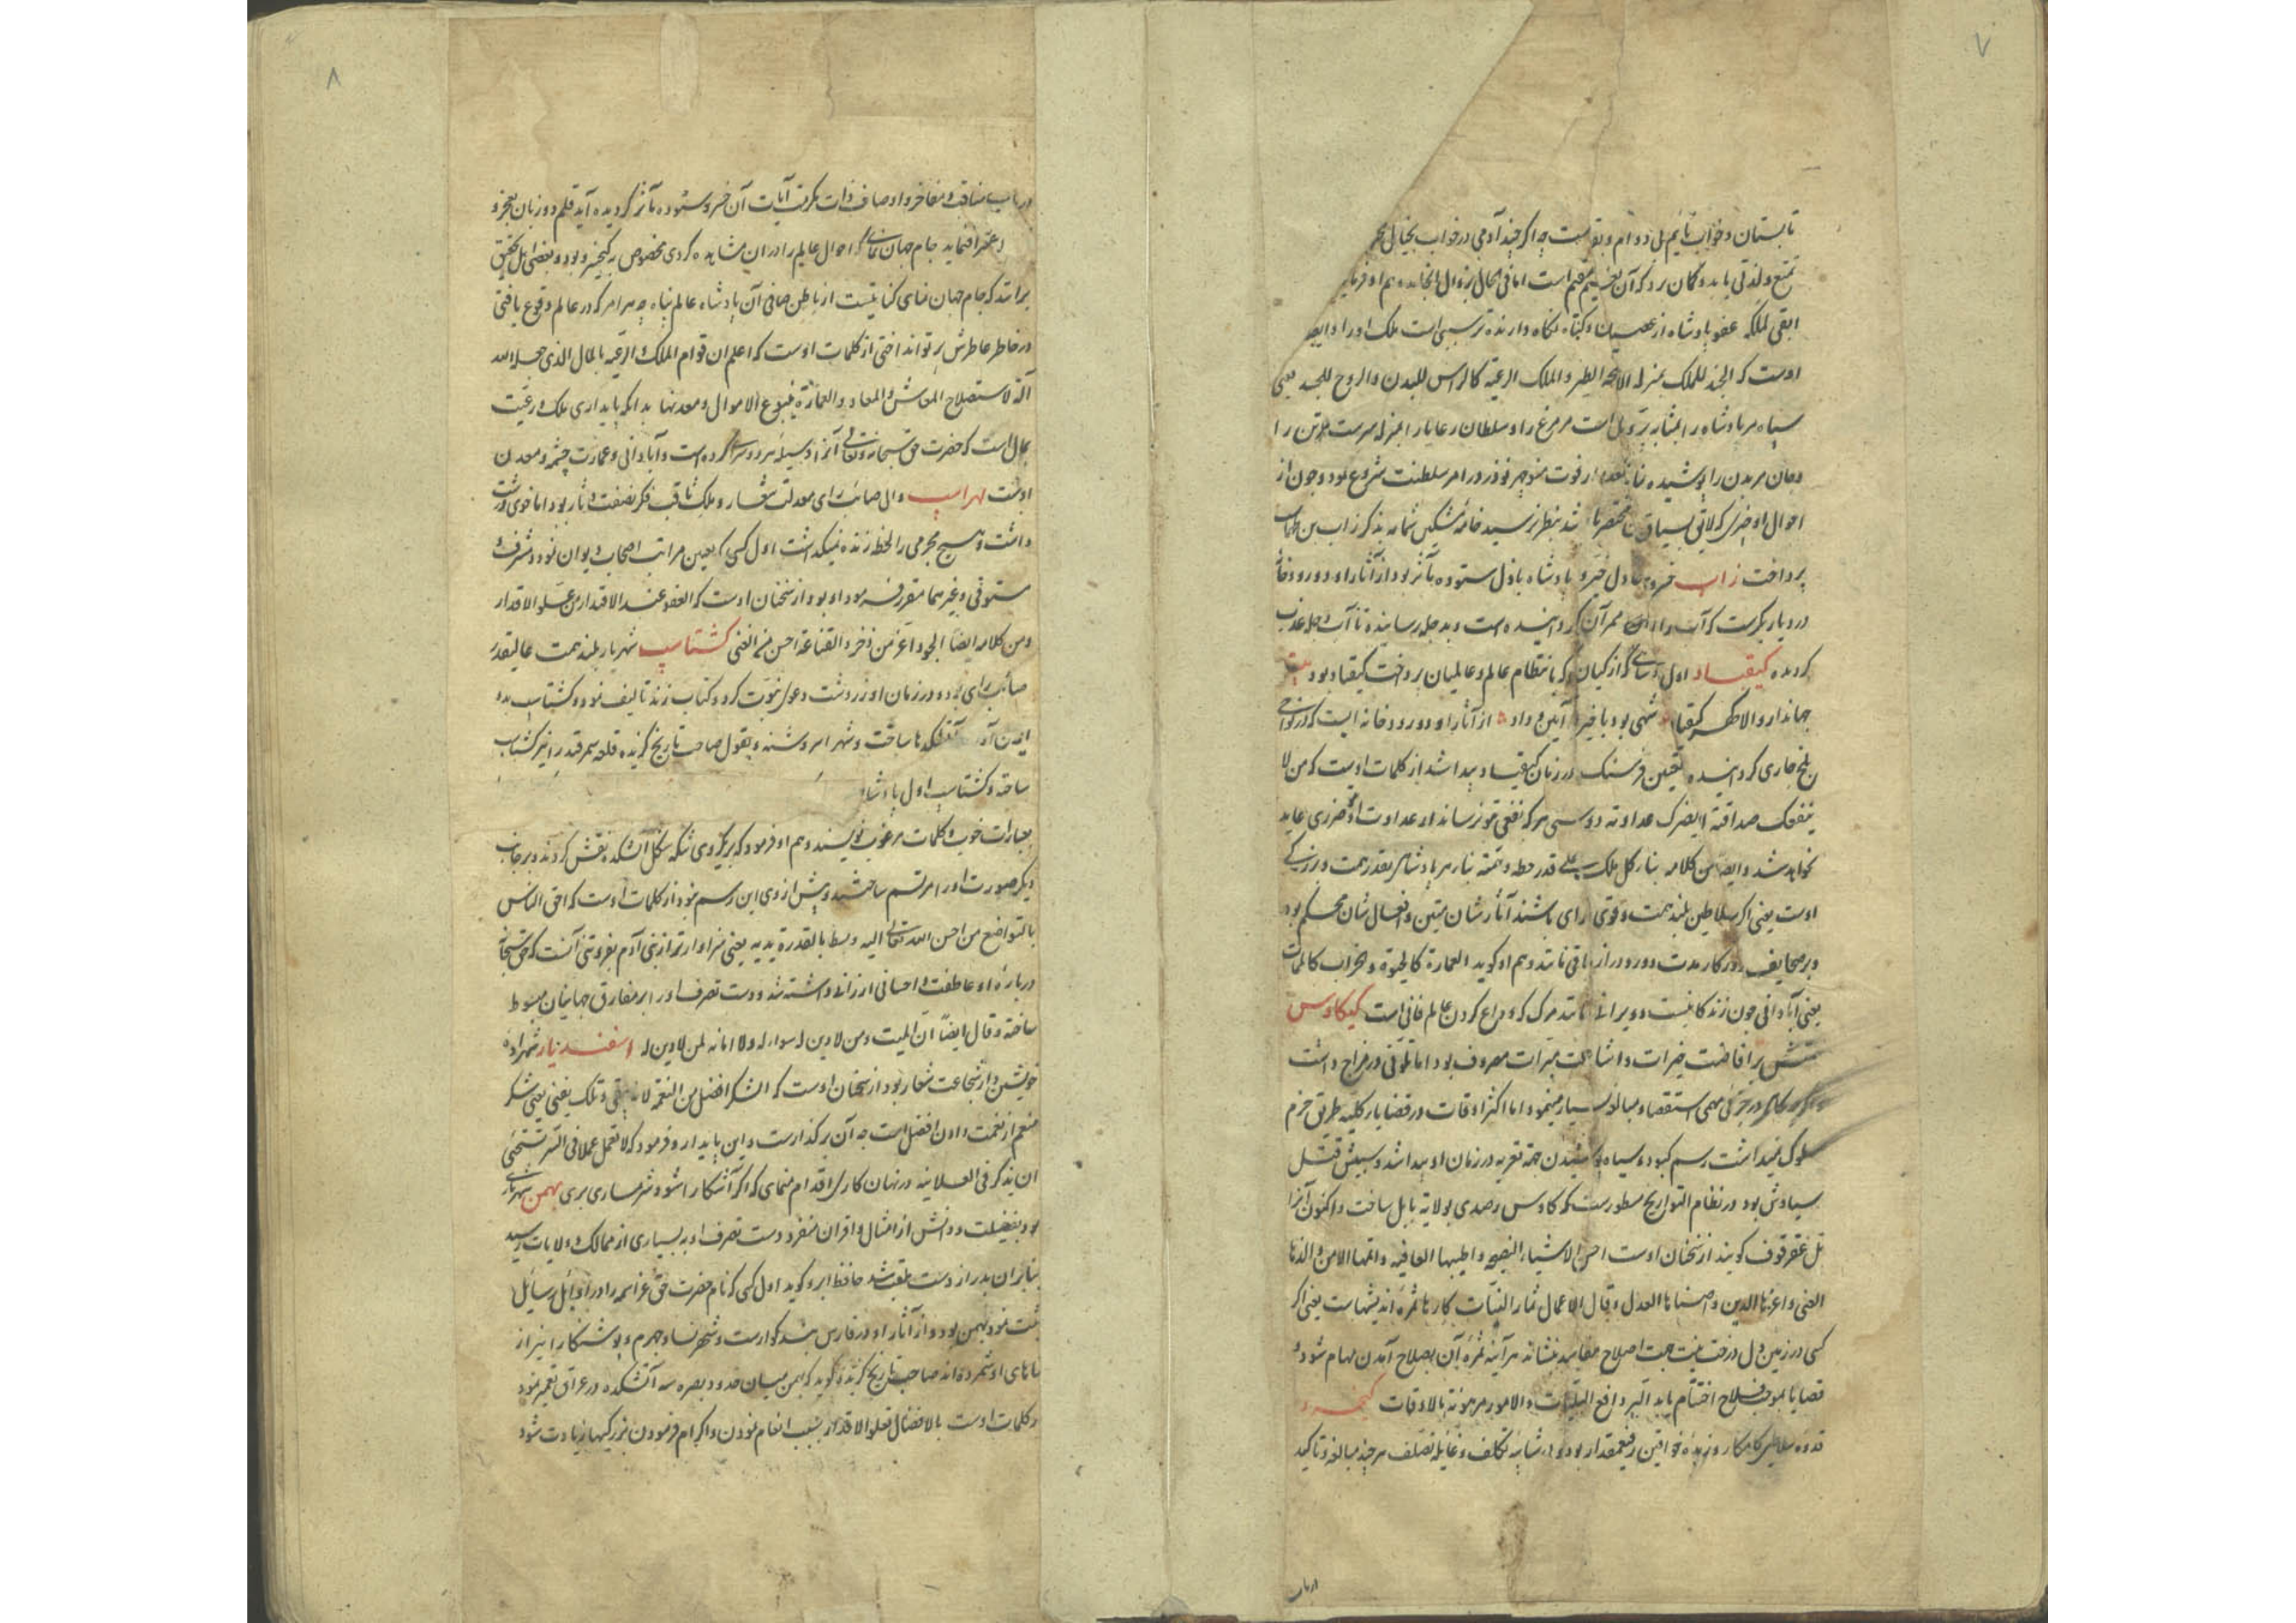 ۷
تابستان و خواب نایم بل دوام و بقاست چه اگر چند آدمی در خواب بخیال
تمتع و لذتی یابد و گمان برد که آن مقیم است اما فی الحال بزوال انجامد و هم او فرماید
ابقی للملک عفو پادشاه از عصیان و گناه نگاه دارنده تر سببی است ملک او را و ایضا
اوست که الجند للملک بمنزله الاجنحه للطیر و الملک للرعیه کالراس للبدن و الروح للجسد یعنی
سپاه مر پادشاه را بمثابه پر و بال است مر مرغ را و سلطان رعایا را بمنزله سرست مر تن را
و جان مر بدن را پوشیده نماند که بعد از فوت منوچهر نوذر در امر سلطنت شروع نمود و چون از
احوال او خبری که لایق سیاق مختصر باشد بنظر نرسید خامه مشکین شمامه بذکر زاب بن طهماسب
پرداخت زاب خسروی عادل خیر و پادشاه باذل ستوده مآثر بود از آثار او دو رودخانه
در دیار بکرست که آب ممر آن گردانیده است و بدجله رسانیده تا آب دجله عذب
گردیده کیقباد اول کسی که از کیان که بانتظام عالم و عالمیان پرداخت کیقباد بود بیت
جهاندار والا گهر کیقباد شهی بود با خیر و آیین و داد از آثار او دو رودخانه ایست که در نواحی
بلخ جاری گردانیده تعیین فرسنگ در زمان کیقباد پیدا شد از کلمات اوست که من لا
ینفعک صداقته لا یضرک عداوته دوستی هر که نفعی بتو نرساند از عداوت او ضرری عاید
نخواهد شد و ایضا من کلامه بناء کل ملک علی قدر خطه و همته بنای هر پادشاهی بقدر همت و بزرگی
اوست یعنی اگر سلاطین بلند همت و قوی رای باشند آثارشان متین و افعالشان محکم بود
و بر صحایف روزگار مدت دور و دراز باقی ماند و هم او گوید العمارة کالحیوة و الخراب کالممات
یعنی آبادانی چون زندگانیست و ویرانی مانند مرگ که وداع کردن عالم فانی است کیکاوس
همتش بر افاضت خیرات و اشاعت مبرات مصروف بود اما تلونی در مزاج داشت
در جزئی مهمی استقصاء و مبالغه بسیار مینمود اما اکثر اوقات در قضایای کلیه طریق حزم
سلوک نمیداشت رسم کبود و سیاه پوشیدن جهة تعزیه در زمان او پیدا شد و سببش قتل
سیاوش بود در نظام التواریخ مسطورست که کاوس رصدی بولایة بابل ساخت و اکنون آنرا
تل عقرقوف گویند از سخنان اوست احسن الاشیاء الصحه و اطیبها العافیه و اتمها الامن و الذها
الغنی و اعزها الدین و اصفاها العدل و قال الاعمال ثمار النیات کارها ثمره اندیشهاست یعنی اگر
کسی در زمین دل درخت نیت جهت اصلاح مفاسد بنشاند هر آینه ثمره آن بصلاح آمدن مهام شود و
قضایا بموجب صلاح اختتام یابد و الامور مرهونة بالاوقات کیخسرو
قدوه سلاطین کامکار و زبده خواقین رفیع مقدار بود و از شایبه تکلف و غایله تصلف هر چند مبالغه و تاکید
در باب
۸
در باب مناقب و مفاخر و اوصاف ذات مکرمت آیات آن خسرو ستوده مآثر گردیده آید قلم دو زبان بعجز و
اعتراف نماید جام جهان نمای که احوال عالم را در آن مشاهده کردی مخصوص به کیخسرو بود و بعضی اهل تحقیق
برانند که جام جهان نمای کنایتیست از باطن صافی آن پادشاه عالم پناه چه هر امر که در عالم وقوع یافتی
در خاطر عاطرش پرتو انداختی از کلمات اوست که اعلم ان قوام الملک و الرعیه بالمال الذی جعله الله
آلة لاستصلاح المعاش و المعاد و العمارة ینبوع الاموال و معدنها بدانکه پایداری ملک و رعیت
بمال است که حضرت حق سبحانه و تعالی آنرا وسیله هر دو سرای گرده است و آبادانی و عمارت چشمه و معدن
اوست لهراسپ والی صائب رای معدلت شعار و ملک ثاقب فکر نصفت آثار بود اما خوی درشت
داشت و هیچ مجرمی را لحظه زنده نمیگذاشت اول کسی که تعیین مراتب اصحاب دیوان نمود و مشرف و
مستوفی و غیر هما مقرر فرمود او بود از سخنان اوست که العفو عند الاقتدار من علو الاقدار
و من کلامه ایضا الجود اعز من ذخر و القناعة احسن من الغنی کشتاسپ شهریار بلند همت عالیقدر
صائب رای بوده و در زمان او زردشت دعوی نبوت کرد و کتاب زند تالیف نمود و کشتاسپ بدو
ایمان آورد آتشکدها ساخت و شهر اسروشنه و بقول صاحب تاریخ گزیده قلعه سمرقند را نیز کشتاسپ
ساخته و کشتاسپ اول پادشاه
بعبارات خوب و کلمات مرغوب نویسند و هم او فرمود که بر یکروی سکه شکل آتشکده نقش کردند و بر جانب
دیگر صورت او را مرتسم ساختند و پیش از وی این رسم نبود از کلمات اوست که احق الناس
بالتواضع من احسن الله تعالی الیه و بسط بالقدرة یدیه یعنی سزاوارتر از بنی آدم بفروتنی آنست که حق سبحانه
درباره او عاطفت و احسانی ارزانی داشته شد و دست تصرف او را بر مفارق جهانیان مبسوط
ساخته و قال ایضا ان المیت و من لا دین له سواء و لا امانه لمن لا دین له اسفندیار شهزاده
خویشتن دار شجاعت شعار بود از سخنان اوست که الشکر افضل من النعمه لانه یبقی و تلک یفنی یعنی شکر
منعم از نعمت دادن افضل است چه آن برگذارست و این پایدار و فرمود که لا تعمل عملا فی السر تستحیی
ان یذکر فی العلانیه در نهان کاری اقدام منمای که اگر آشکارا شود شرمساری بری بهمن شهریاری
بود بفضیلت و دانش از امثال و اقران منفرد دست تصرف او به بسیاری از ممالک و ولایات رسید
بنابر آن بدراز دست ملقب شد حافظ ابرو گوید اول کسی که نام حضرت حق عز اسمه را در اوائل رسایل
ثبت نمود بهمن بود و از آثار او در فارس بند کوارست و شهر نسا و جهرم و بوشنکار را نیز از
بناهای او شمرده اند صاحب تاریخ گزیده گوید که بهمن میان حدود بصره سه آتشکده در عراق تعمیر نمود
و کلمات اوست بالافضال تعلو الاقدار بسبب انعام نمودن و اکرام فرمودن بزرگیها زیادت شود